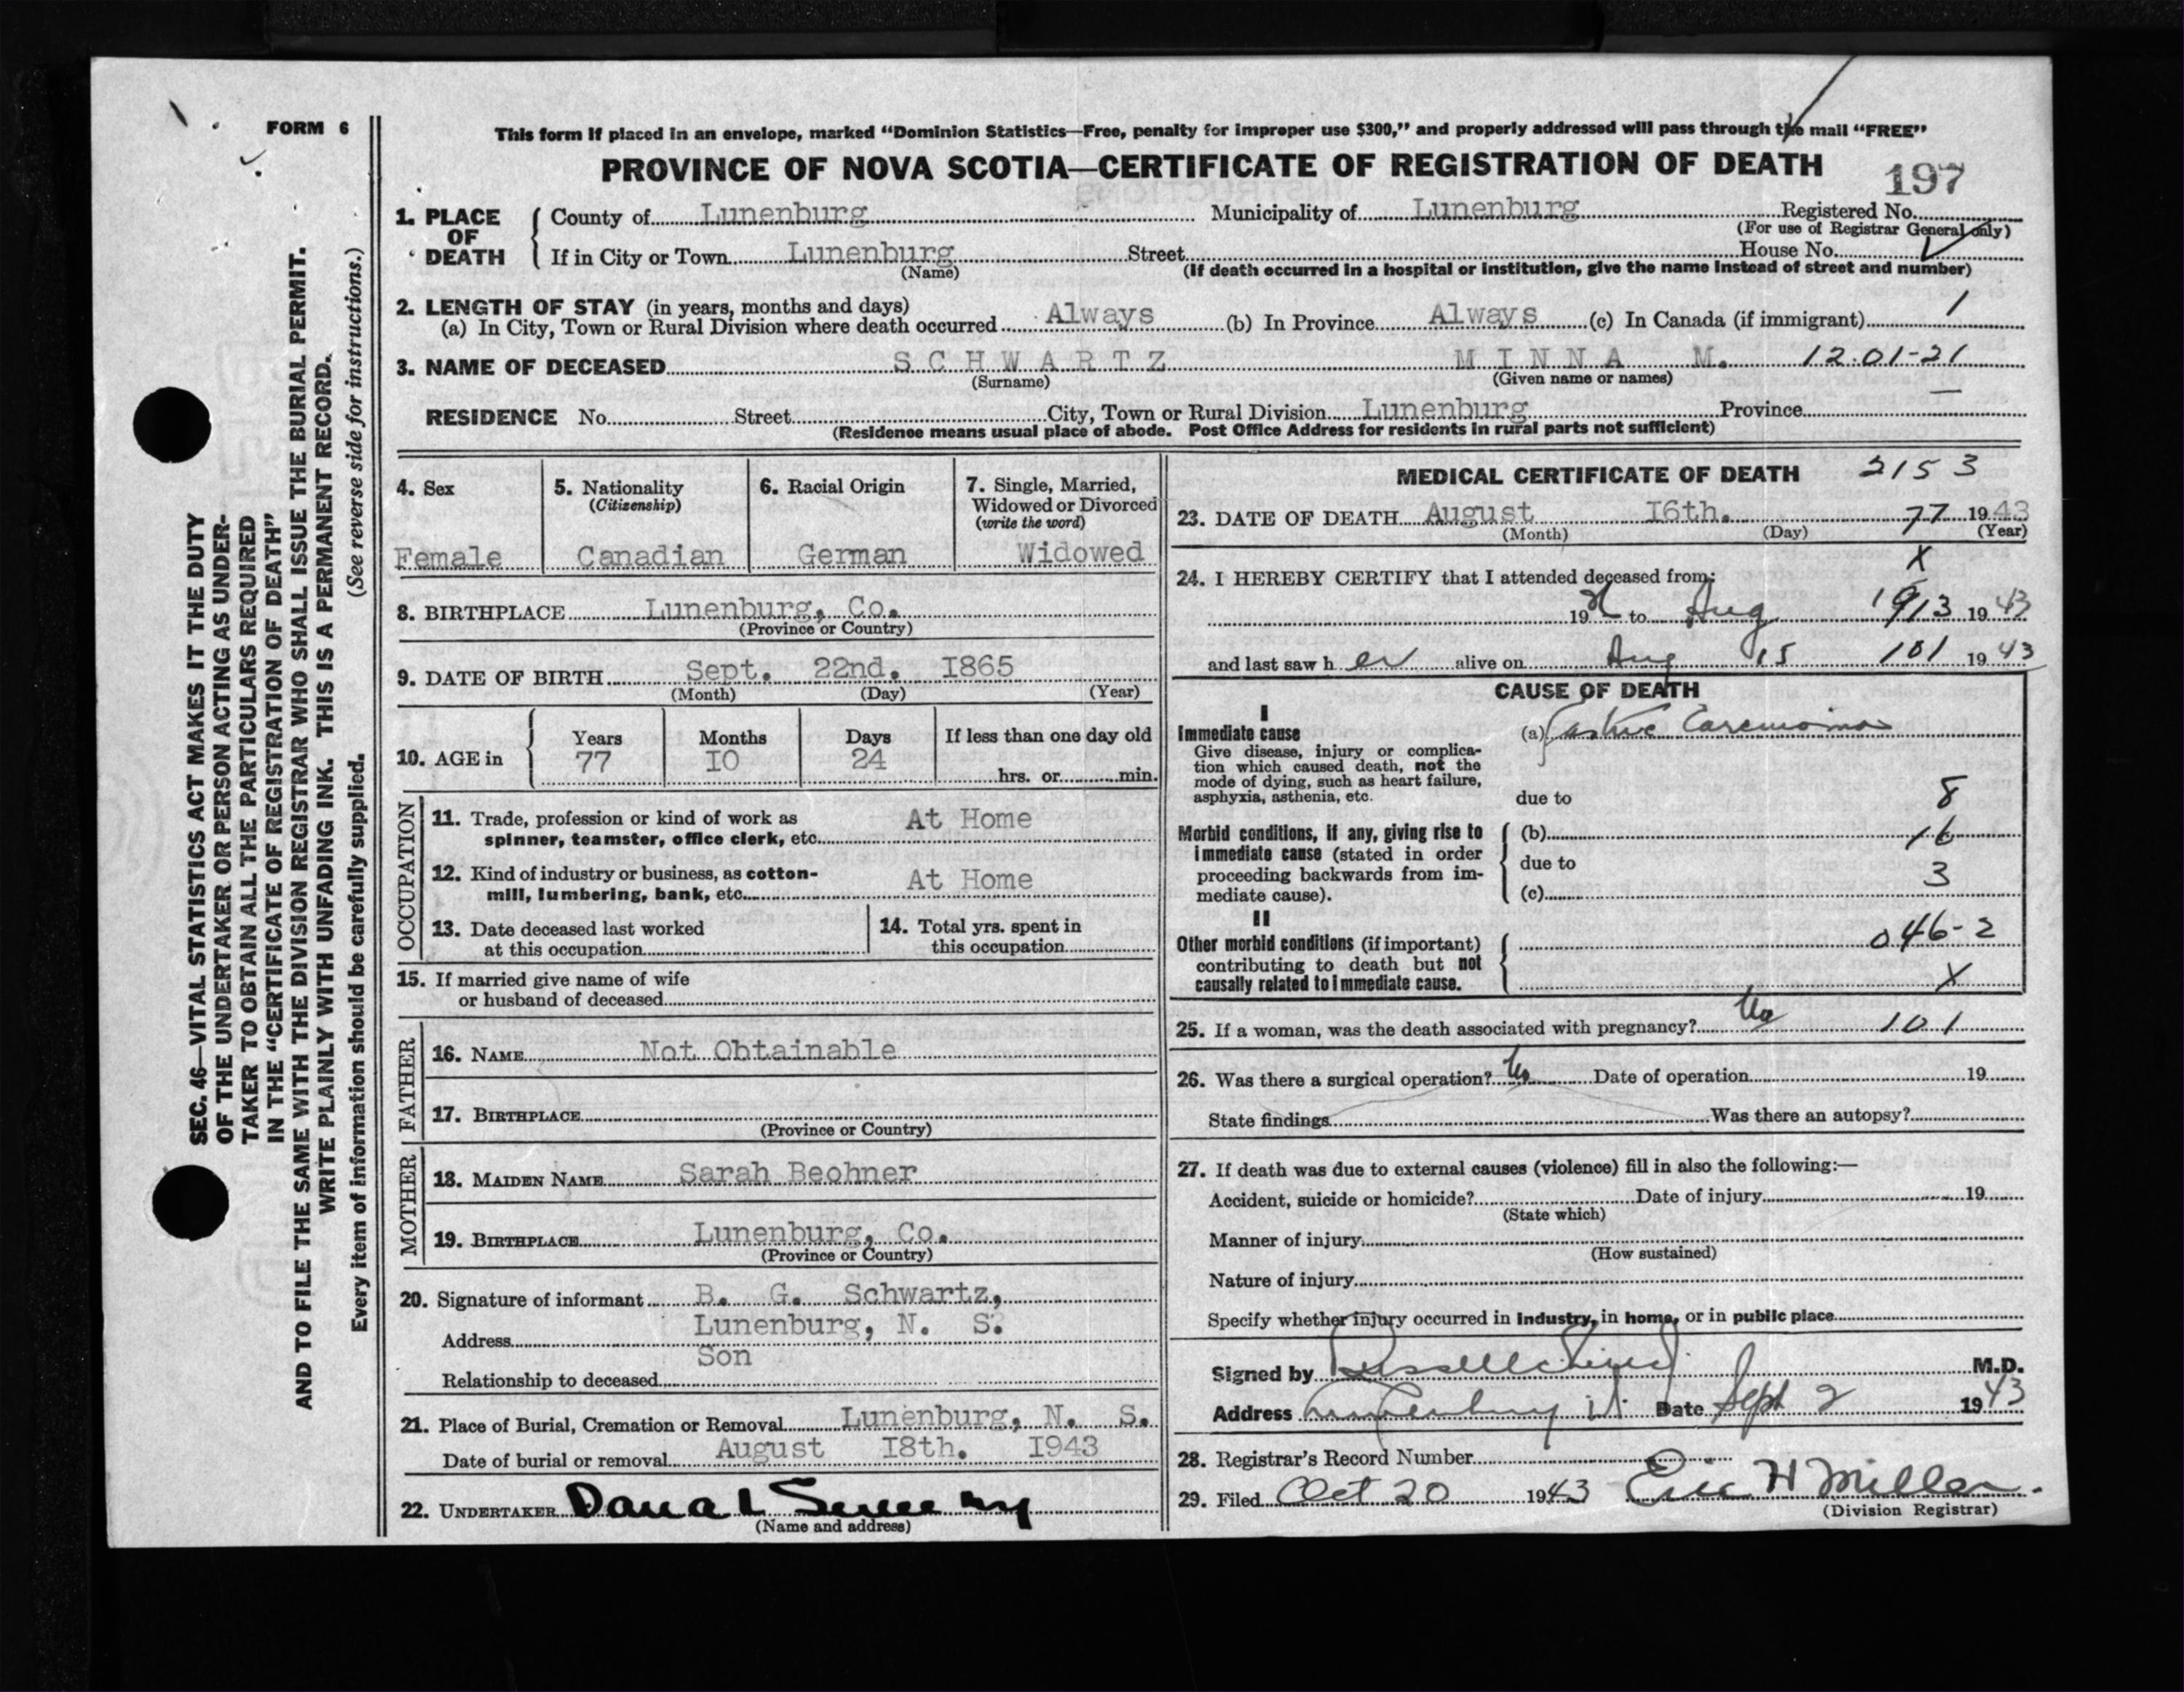 FORM 6
This form if placed in an envelope, marked “Dominion Statistics—Free, penalty for improper use $300,” and properly addressed will pass through the mail “FREE”
PROVINCE OF NOVA SCOTIA—CERTIFICATE OF REGISTRATION OF DEATH
197
1. PLACE OF DEATH
County of Lunenburg Municipality of Lunenburg Registered No.
(For use of Registrar General only)
If in City or Town Lunenburg Street House No.
(Name) (If death occurred in a hospital or institution, give the name instead of street and number)
2. LENGTH OF STAY (in years, months and days)
(a) In City, Town or Rural Division where death occurred Always (b) In Province Always (c) In Canada (if immigrant) 1
3. NAME OF DECEASED SCHWARTZ MINNA M. 12.01-21
(Surname) (Given name or names)
RESIDENCE No. Street City, Town or Rural Division Lunenburg Province —
(Residence means usual place of abode. Post Office Address for residents in rural parts not sufficient)
4. Sex
Female
5. Nationality
(Citizenship)
Canadian
6. Racial Origin
German
7. Single, Married,
Widowed or Divorced
(write the word)
Widowed
8. BIRTHPLACE Lunenburg, Co.
(Province or Country)
9. DATE OF BIRTH Sept. 22nd. I865
(Month) (Day) (Year)
10. AGE in
Years Months Days If less than one day old
77 IO 24
hrs. or min.
OCCUPATION
11. Trade, profession or kind of work as
spinner, teamster, office clerk, etc. At Home
12. Kind of industry or business, as cotton-
mill, lumbering, bank, etc. At Home
13. Date deceased last worked
at this occupation
14. Total yrs. spent in
this occupation
15. If married give name of wife
or husband of deceased
FATHER
16. NAME Not Obtainable
17. BIRTHPLACE
(Province or Country)
MOTHER
18. MAIDEN NAME Sarah Beohner
19. BIRTHPLACE Lunenburg, Co.
(Province or Country)
20. Signature of informant B. G. Schwartz,
Address Lunenburg, N. S.
Relationship to deceased Son
21. Place of Burial, Cremation or Removal Lunenburg, N. S.
Date of burial or removal August I8th. I943
22. UNDERTAKER Dana L
(Name and address)
MEDICAL CERTIFICATE OF DEATH 2153
23. DATE OF DEATH August I6th. 77 1943
(Month) (Day) (Year)
X
24. I HEREBY CERTIFY that I attended deceased from:
19 to Aug 1943
and last saw h er alive on Aug 15 101 1943
CAUSE OF DEATH
I
Immediate cause
Give disease, injury or complica-
tion which caused death, not the
mode of dying, such as heart failure,
asphyxia, asthenia, etc.
(a) Gastric Carcinoma
due to 8
Morbid conditions, if any, giving rise to
immediate cause (stated in order
proceeding backwards from im-
mediate cause).
(b) 16
due to
(c) 3
II
Other morbid conditions (if important)
contributing to death but not
causally related to immediate cause.
046-2
X
25. If a woman, was the death associated with pregnancy? No 101
26. Was there a surgical operation? No Date of operation 19
State findings Was there an autopsy?
27. If death was due to external causes (violence) fill in also the following:—
Accident, suicide or homicide? Date of injury 19
(State which)
Manner of injury
(How sustained)
Nature of injury
Specify whether injury occurred in industry, in home, or in public place
Signed by M.D.
Address Lunenburg Date Sept 2 1943
28. Registrar's Record Number
29. Filed Oct 20 1943 Eric H Miller.
(Division Registrar)
SEC. 46—VITAL STATISTICS ACT MAKES IT THE DUTY
OF THE UNDERTAKER OR PERSON ACTING AS UNDER-
TAKER TO OBTAIN ALL THE PARTICULARS REQUIRED
IN THE “CERTIFICATE OF REGISTRATION OF DEATH”
AND TO FILE THE SAME WITH THE DIVISION REGISTRAR WHO SHALL ISSUE THE BURIAL PERMIT.
WRITE PLAINLY WITH UNFADING INK. THIS IS A PERMANENT RECORD.
Every item of information should be carefully supplied. (See reverse side for instructions.)